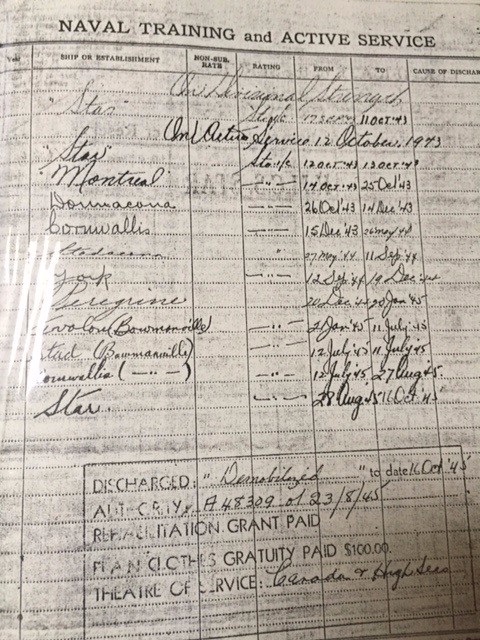 NAVAL TRAINING and ACTIVE SERVICE
Year SHIP OR ESTABLISHMENT NON-SUB. RATE RATING FROM TO CAUSE OF DISCHAR
On Divisional Strength
"Star" Sto II/c 11 Oct '43
On Active Service 12 October, 1943
"Star" Sto II/c 12 Oct '43 13 Oct '43
"Montreal —"— 14 Oct '43 25 Oct '43
Donnacona —"— 26 Oct '43 14 Dec '43
Cornwallis —"— 15 Dec '43 26 May '44
" 27 May '44 11 Sep '44
York —"— 12 Sep '44 19 Dec '44
Peregrine 20 Dec '44 20 Jan '45
(Bowmanville) —"— 21 Jan '45 11 July '45
(Bowmanville) —"— 12 July '45 11 July 45
ornwallis ( —"— ) —"— 12 July '45 27 Aug 45
Star. —"— 28 Aug 45 16 Oct '45
DISCHARGED: "Demobilized" to date 16 Oct '45
AUTHORITY: A 48309 of 23/8/45
REHABILITATION GRANT PAID
PLAIN CLOTHES GRATUITY PAID $100.00.
THEATRE OF SERVICE: Canada & High Seas